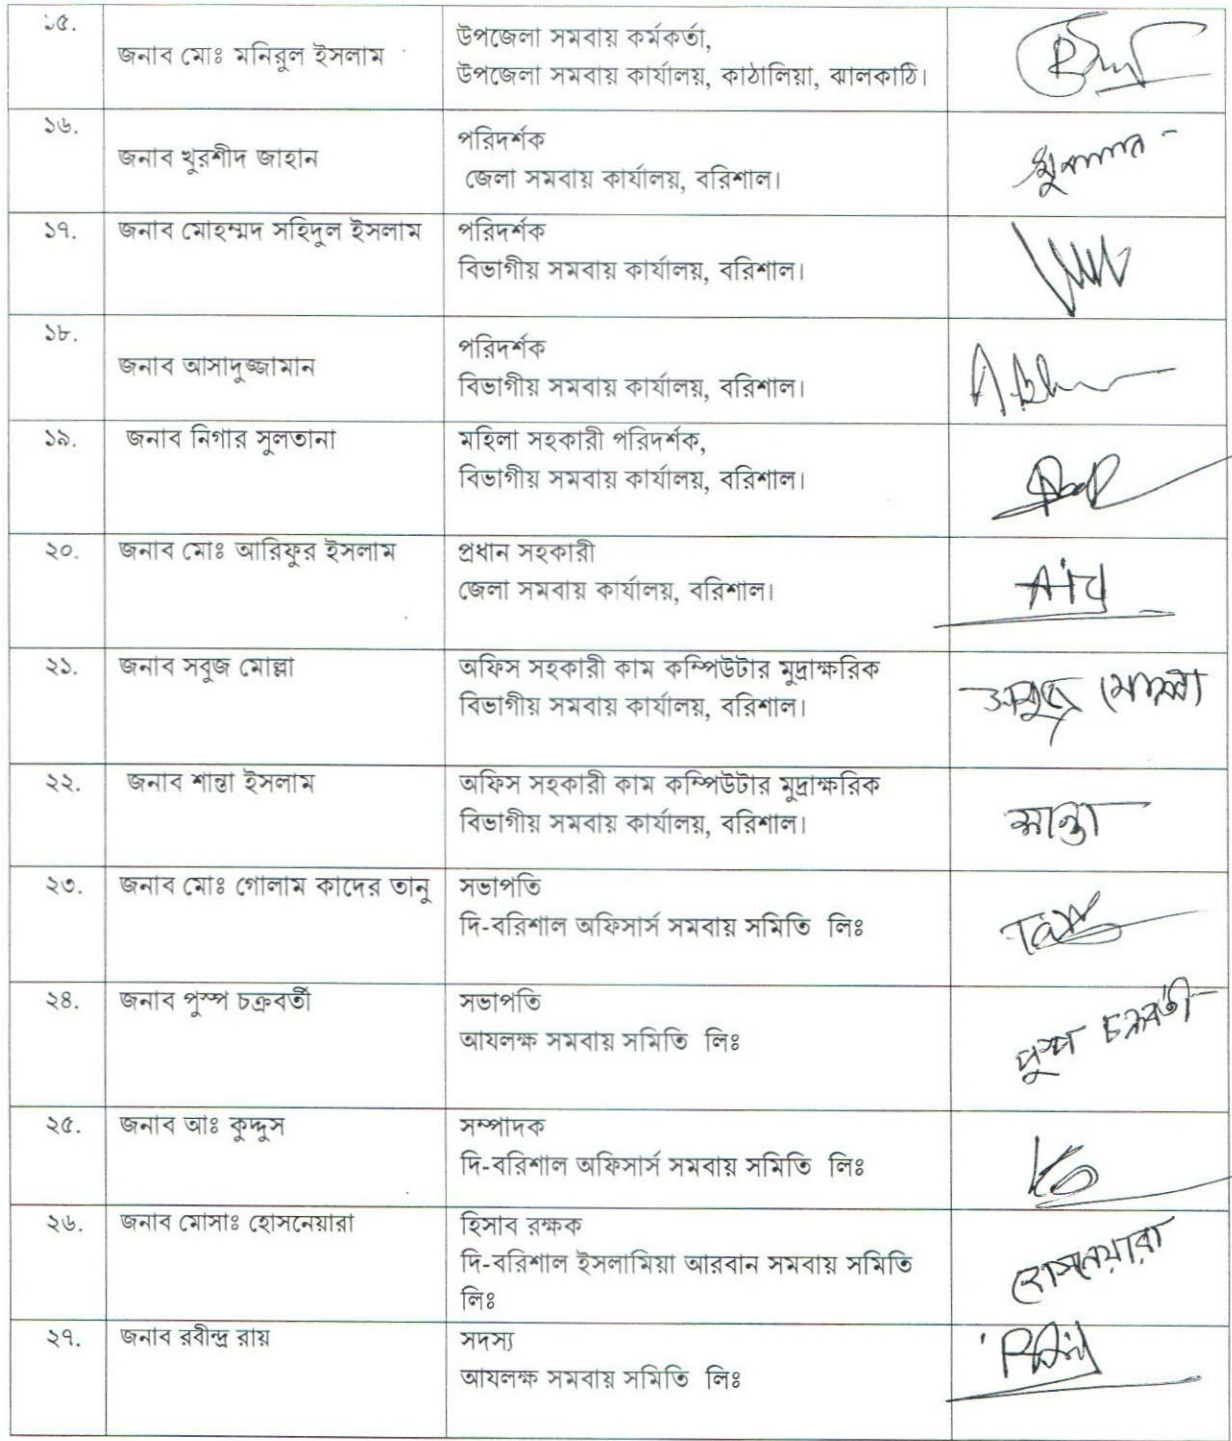 ১৫.
জনাব মোঃ মনিরুল ইসলাম
উপজেলা সমবায় কর্মকর্তা,
উপজেলা সমবায় কার্যালয়, কাঠালিয়া, ঝালকাঠি।
১৬.
জনাব খুরশীদ জাহান
পরিদর্শক
জেলা সমবায় কার্যালয়, বরিশাল।
১৭.
জনাব মোহম্মদ সহিদুল ইসলাম
পরিদর্শক
বিভাগীয় সমবায় কার্যালয়, বরিশাল।
১৮.
জনাব আসাদুজ্জামান
পরিদর্শক
বিভাগীয় সমবায় কার্যালয়, বরিশাল।
১৯.
জনাব নিগার সুলতানা
মহিলা সহকারী পরিদর্শক,
বিভাগীয় সমবায় কার্যালয়, বরিশাল।
২০.
জনাব মোঃ আরিফুর ইসলাম
প্রধান সহকারী
জেলা সমবায় কার্যালয়, বরিশাল।
২১.
জনাব সবুজ মোল্লা
অফিস সহকারী কাম কম্পিউটার মুদ্রাক্ষরিক
বিভাগীয় সমবায় কার্যালয়, বরিশাল।
সবুজ মোল্লা
২২.
জনাব শান্তা ইসলাম
অফিস সহকারী কাম কম্পিউটার মুদ্রাক্ষরিক
বিভাগীয় সমবায় কার্যালয়, বরিশাল।
শান্তা
২৩.
জনাব মোঃ গোলাম কাদের তানু
সভাপতি
দি-বরিশাল অফিসার্স সমবায় সমিতি লিঃ
২৪.
জনাব পুস্প চক্রবর্তী
সভাপতি
আযলক্ষ সমবায় সমিতি লিঃ
পুস্প চক্রবর্তী
২৫.
জনাব আঃ কুদ্দুস
সম্পাদক
দি-বরিশাল অফিসার্স সমবায় সমিতি লিঃ
২৬.
জনাব মোসাঃ হোসনেয়ারা
হিসাব রক্ষক
দি-বরিশাল ইসলামিয়া আরবান সমবায় সমিতি
লিঃ
হোসনেয়ারা
২৭.
জনাব রবীন্দ্র রায়
সদস্য
আযলক্ষ সমবায় সমিতি লিঃ